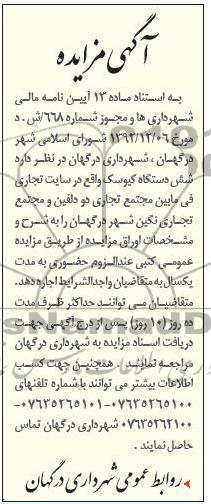 آگهی مزایده
به استناد ماده ۱۳ آیین نامه مالی
شهرداری ها و مجوز شماره ۶۶۸/ش . د
مورخ ۱۳۹۲/۱۲/۰۶ شورای اسلامی شهر
درگهان ، شهرداری درگهان در نظر دارد
شش دستگاه کیوسک واقع در سایت تجاری
فی مابین مجتمع تجاری دو دلفین و مجتمع
تجاری نگین شهر درگهان را به شرح و
مشخصات اوراق مزایده از طریق مزایده
عمومی کتبی عندالزوم حضوری به مدت
یکسال به متقاضیان واجدالشرایط اجاره دهد.
متقاضیان می توانند حداکثر ظرف مدت
ده روز (۱۰ روز) پس از درج آگهی جهت
دریافت اسناد مزایده به شهرداری درگهان
مراجعه نمایند . همچنین جهت کسب
اطلاعات بیشتر می توانند با شماره تلفنهای
۰۷۶۳۵۲۶۵۱۰۰-۰۷۶۳۵۲۶۵۱۰۱-
۰۷۶۳۵۲۶۲۱۰۰ شهرداری درگهان تماس
حاصل نمایند .
روابط عمومی شهرداری درگهان